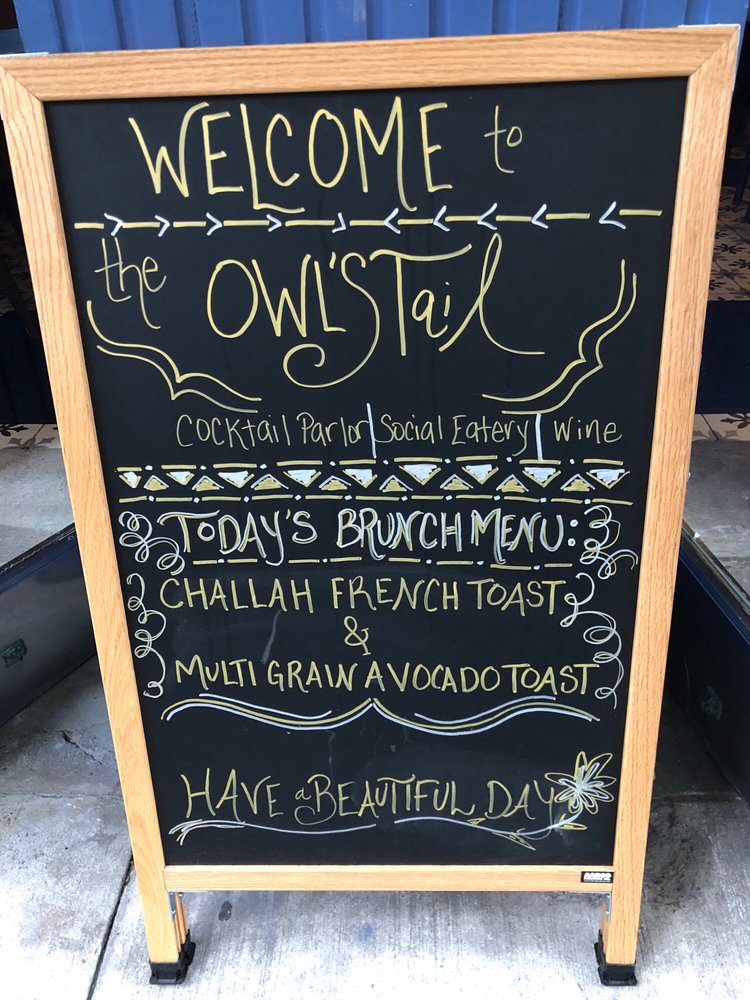 WELCOME to
the OWL'S Tail
Cocktail Parlor | Social Eatery | Wine
TODAY'S BRUNCH MENU:
CHALLAH FRENCH TOAST
&
MULTI GRAIN AVOCADO TOAST
HAVE a BEAUTIFUL DAY